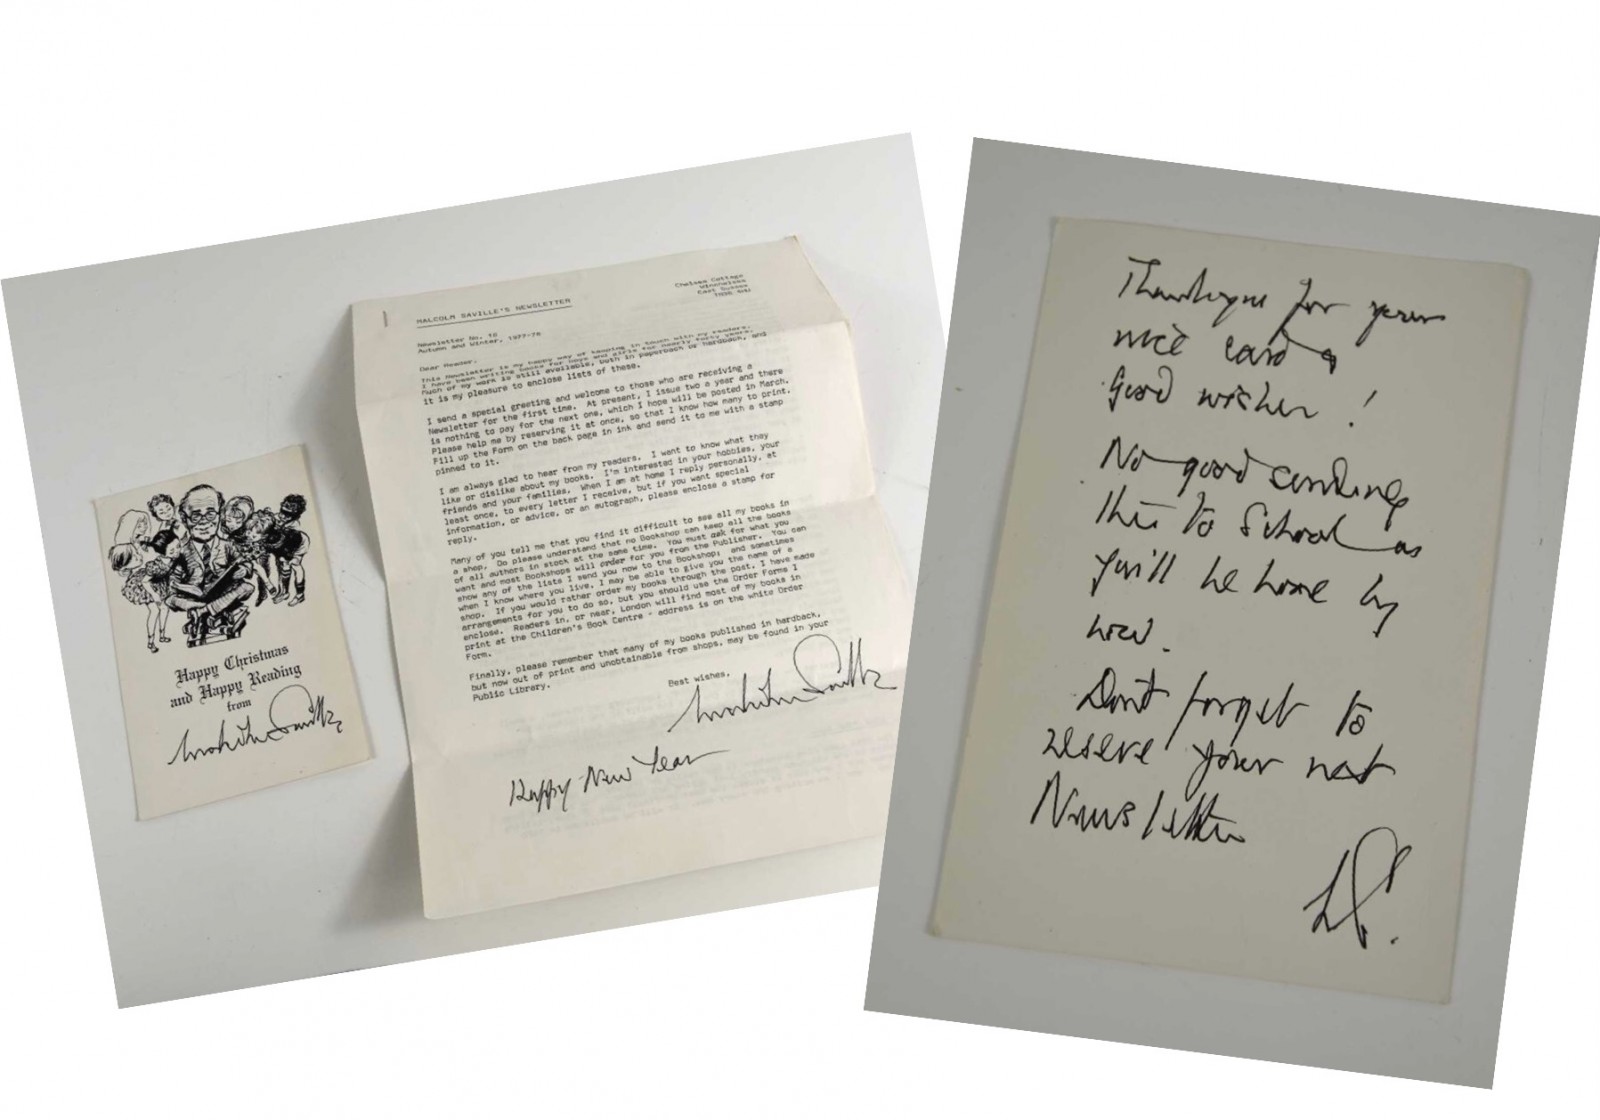 Happy Christmas
and Happy Reading
from
Malcolm Saville
MALCOLM SAVILLE'S NEWSLETTER
Chelsea Cottage
Winchelsea
East Sussex
Newsletter No. 16
Autumn and Winter, 1977-78
Dear Reader,
This Newsletter is my happy way of keeping in touch with my readers.
I have been writing books for boys and girls for nearly forty years.
Much of my work is still available, both in paperback or hardback, and
it is my pleasure to enclose lists of these.
I send a special greeting and welcome to those who are receiving a
Newsletter for the first time. At present, I issue two a year and there
is nothing to pay for the next one, which I hope will be posted in March.
Please help me by reserving it at once, so that I know how many to print.
Fill up the Form on the back page in ink and send it to me with a stamp
pinned to it.
I am always glad to hear from my readers. I want to know what they
like or dislike about my books. I'm interested in your hobbies, your
friends and your families. When I am at home I reply personally, at
least once, to every letter I receive, but if you want special
information, or advice, or an autograph, please enclose a stamp for
reply.
Many of you tell me that you find it difficult to see all my books in
a shop. Do please understand that no Bookshop can keep all the books
of all authors in stock at the same time. You must ask for what you
want and most Bookshops will order for you from the Publisher. You can
show any of the lists I send you now to the Bookshop; and sometimes
when I know where you live, I may be able to give you the name of a
shop. If you would rather order my books through the post, I have made
arrangements for you to do so, but you should use the Order Forms I
enclose. Readers in, or near, London will find most of my books in
print at the Children's Book Centre - address is on the white Order
Form.
Finally, please remember that many of my books published in hardback,
but now out of print and unobtainable from shops, may be found in your
Public Library.
Best wishes,
Malcolm Saville
Happy New Year
Thankyou for your
nice card &
Good wishes!
No good sending
this to School as
you'll be home by
now.
Dont forget to
reserve your next
Newsletter